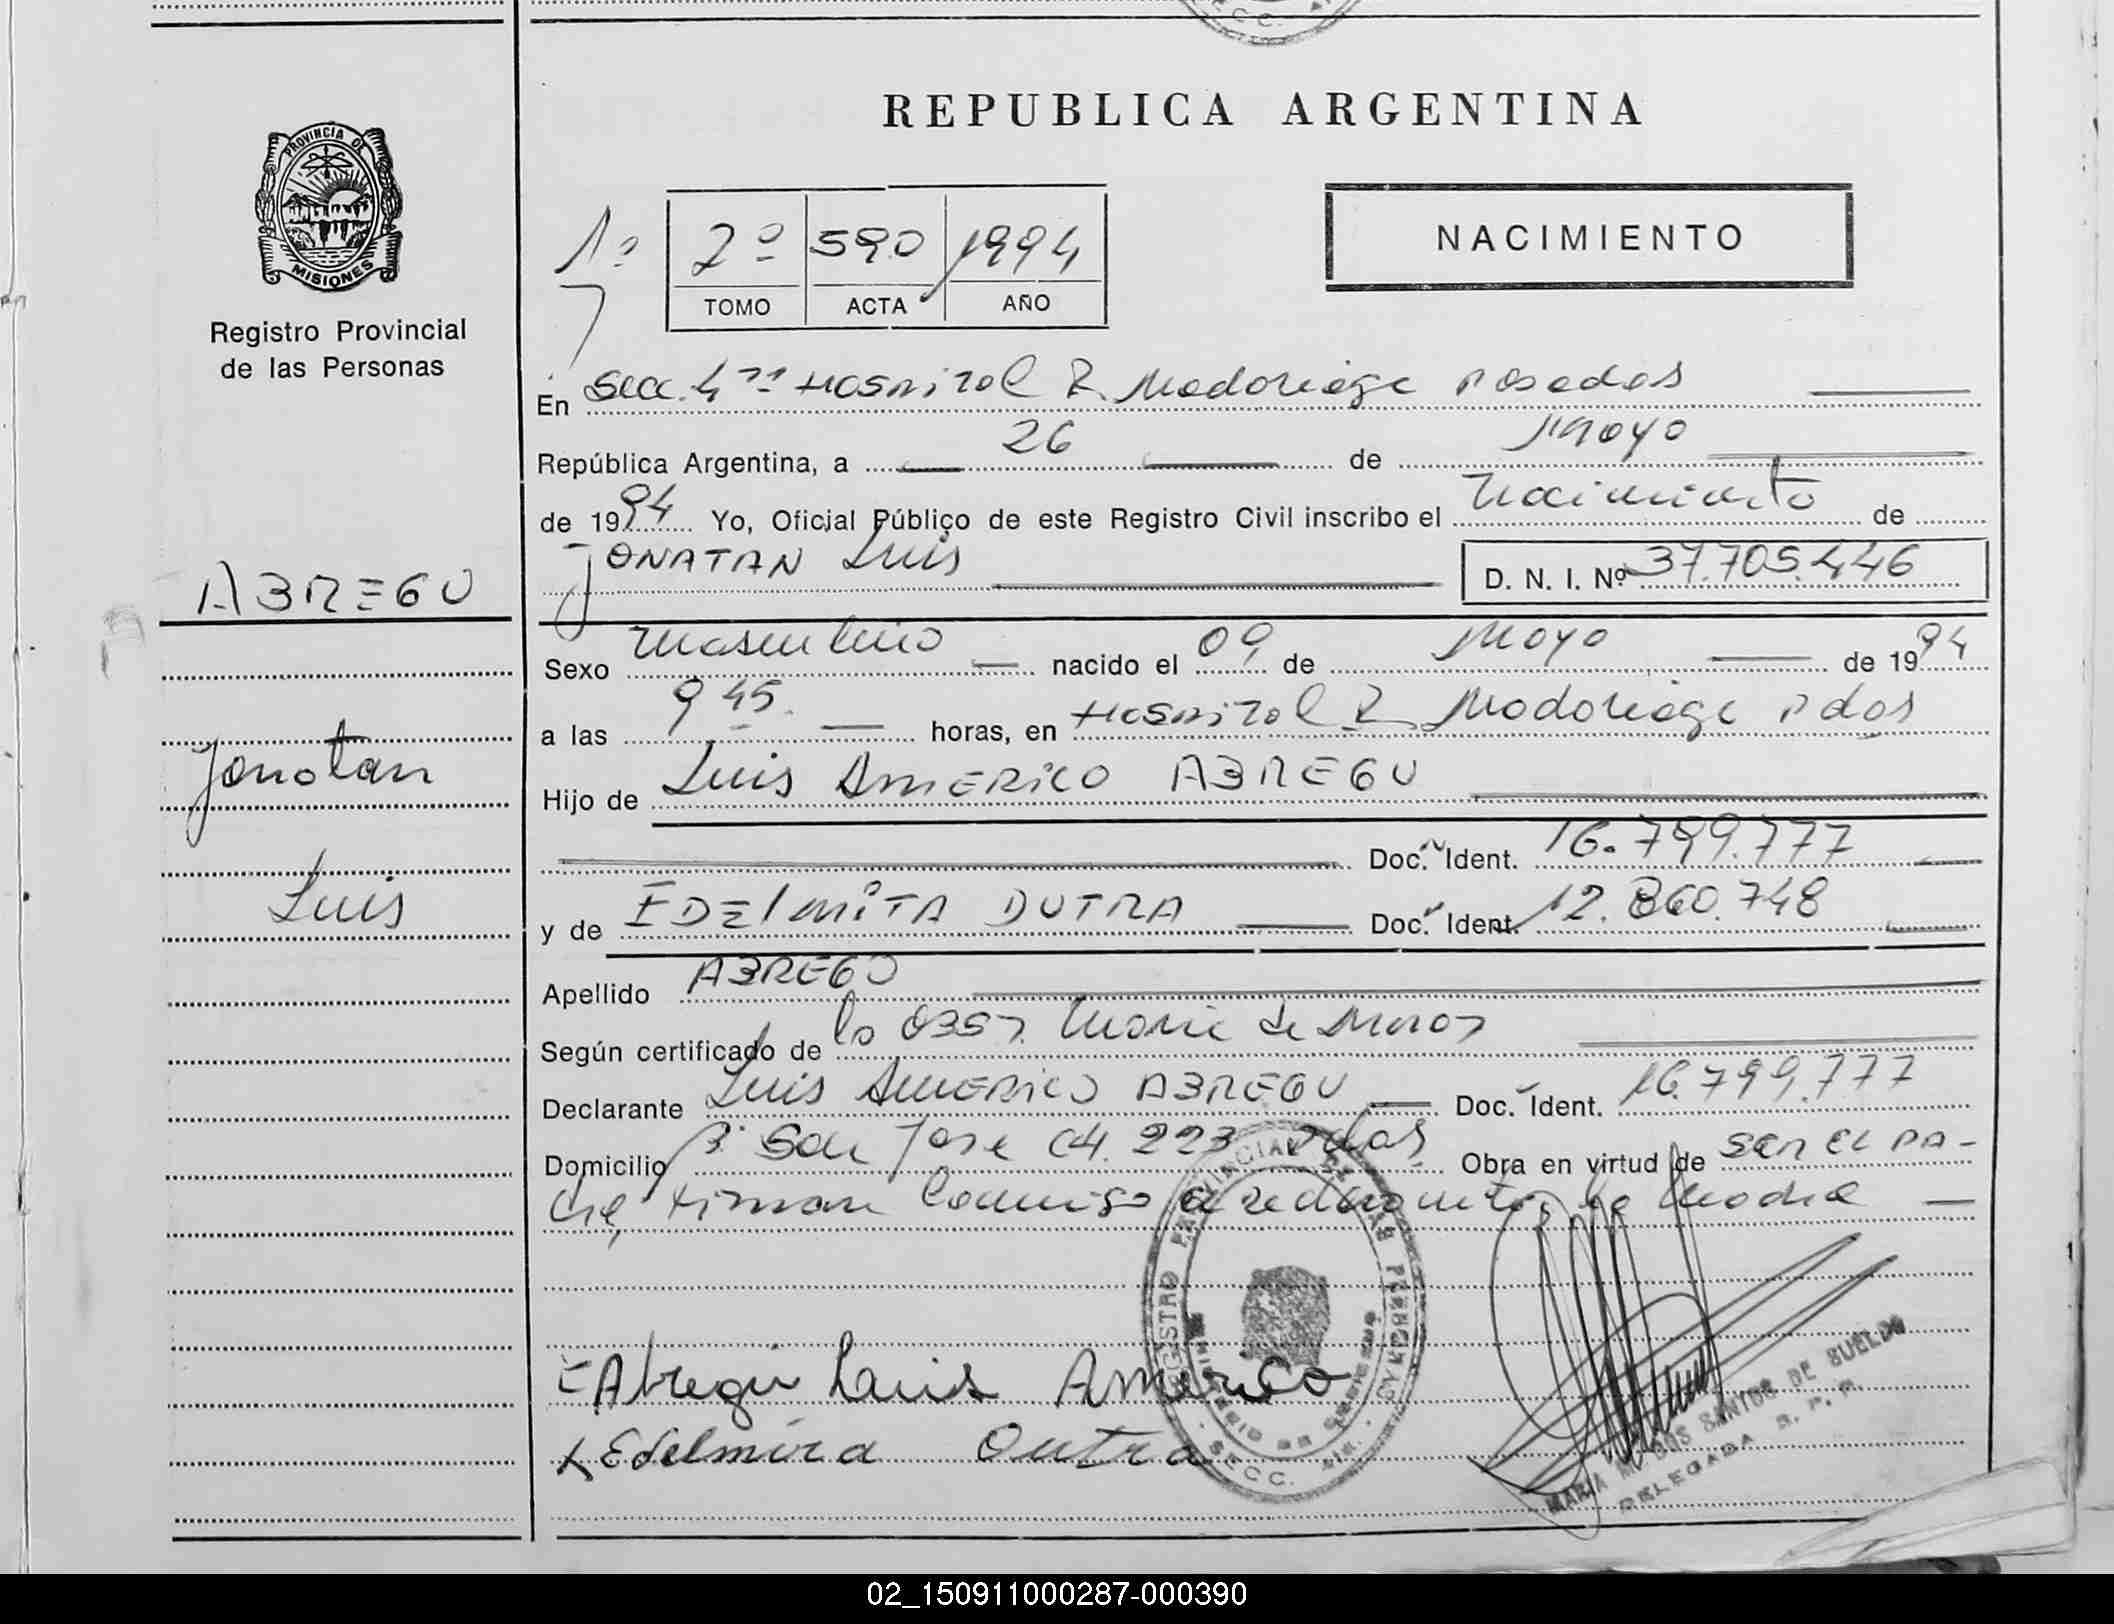 REPUBLICA ARGENTINA
PROVINCIA DE MISIONES
Registro Provincial
de las Personas
1º
2º 590 1994
TOMO ACTA AÑO
NACIMIENTO
En Secc. 4ta Hospital R. Madariaga Posadas
República Argentina, a 26 de Mayo
de 1994 Yo, Oficial Público de este Registro Civil inscribo el Nacimiento de
JONATAN Luis D. N. I. Nº 37.705.446
ABREGU
Jonatan
Luis
Sexo Masculino nacido el 09 de Mayo de 1994
a las 9 45 horas, en Hospital R Madariaga Pdas
Hijo de Luis AMERICO ABREGU
Doc. Ident. 16.799.777
y de EDElMITA DUTRA Doc. Ident. 12.860.748
Apellido ABREGU
Según certificado de la Obst. Maria de
Declarante Luis AMERICO ABREGU Doc. Ident. 16.799.777
Domicilio Bº San Jose C4. 223 Pdas Obra en virtud de SER EL PA-
dre, firman conmigo la madre
Abregu Luis Americo
x Edelmira Dutra
REGISTRO PROVINCIAL DE LAS PERSONAS
SECC. 4ta.
MARIA M. DOS SANTOS DE SUELDO
DELEGADA R. P. P.
02_150911000287-000390